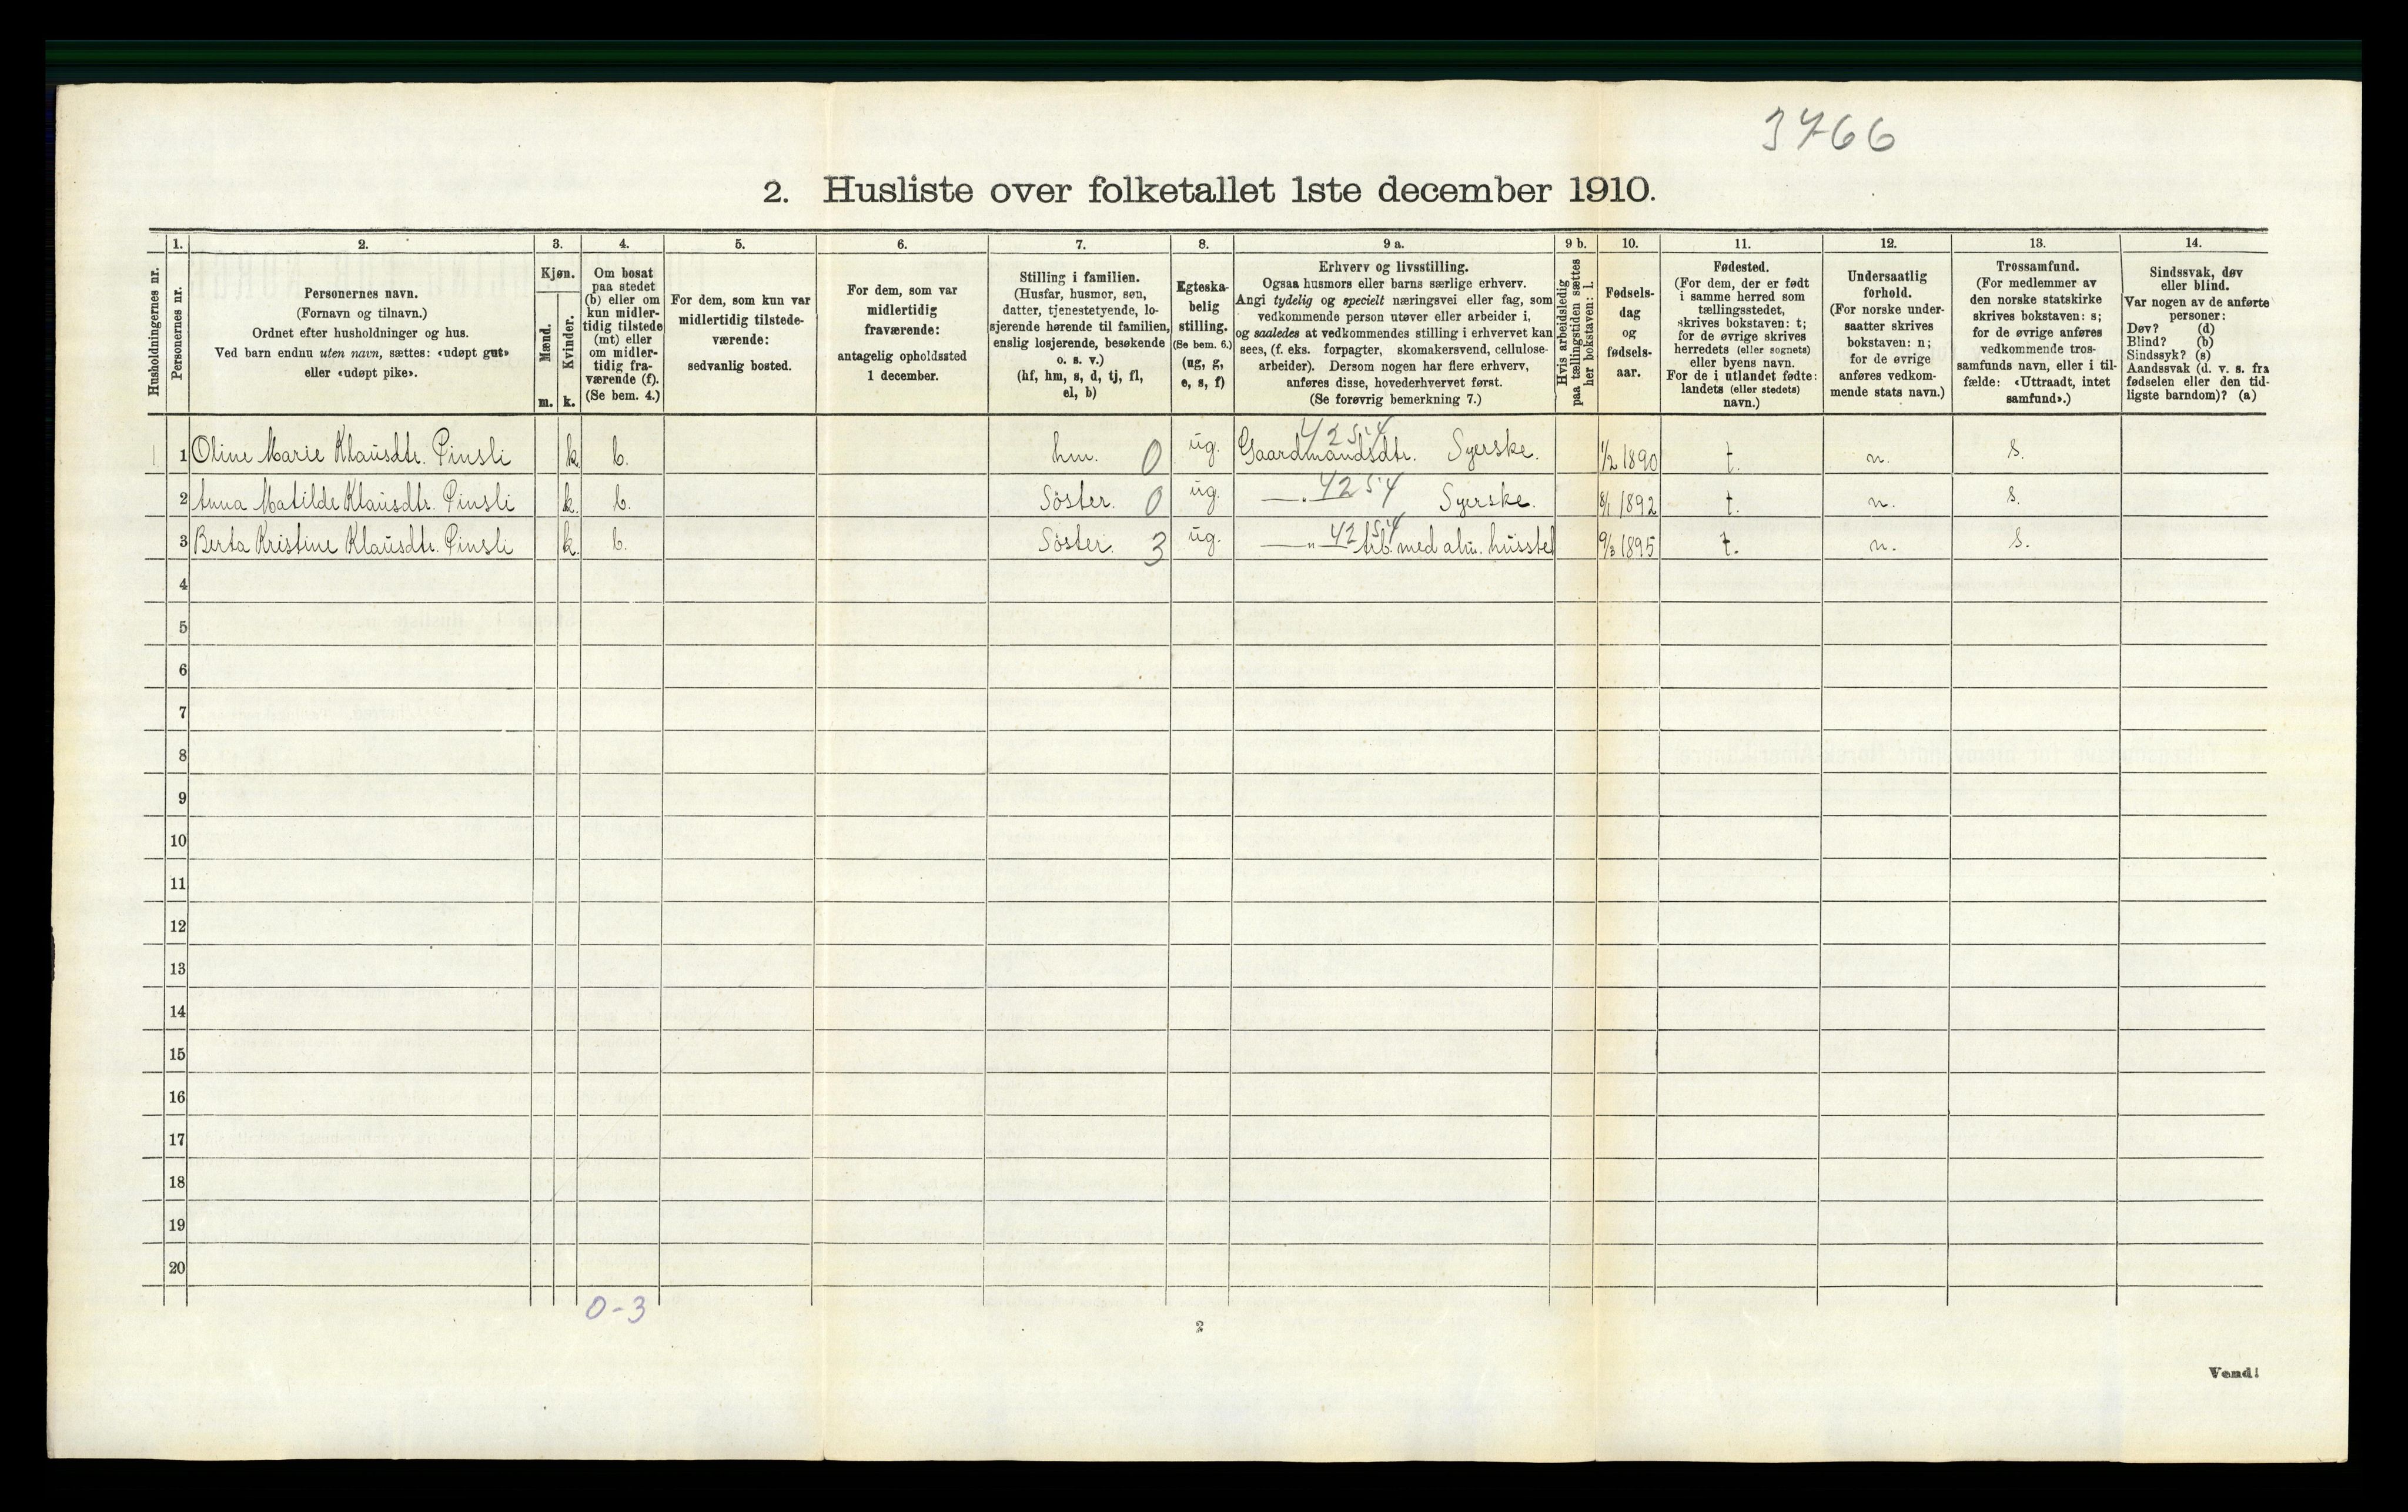 3766
2. Husliste over folketallet 1ste december 1910.
1. 2. 3. 4. 5. 6. 7. 8. 9 a. 9 b. 10. 11. 12. 13. 14.
Husholdningernes nr.
Personernes nr.
Personernes navn.
(Fornavn og tilnavn.)
Ordnet efter husholdninger og hus.
Ved barn endnu uten navn, sættes: «udøpt gut»
eller «udøpt pike».
Kjøn.
Mænd.
Kvinder.
m. k.
Om bosat
paa stedet
(b) eller om
kun midler-
tidig tilstede
(mt) eller
om midler-
tidig fra-
værende (f).
(Se bem. 4.)
For dem, som kun var
midlertidig tilstede-
værende:
sedvanlig bosted.
For dem, som var
midlertidig
fraværende:
antagelig opholdssted
1 december.
Stilling i familien.
(Husfar, husmor, søn,
datter, tjenestetyende, lo-
sjerende hørende til familien,
enslig losjerende, besøkende
o. s. v.)
(hf, hm, s, d, tj, fl,
el, b)
Egteska-
belig
stilling.
(Se bem. 6.)
(ug, g,
e, s, f)
Erhverv og livsstilling.
Ogsaa husmors eller barns særlige erhverv.
Angi tydelig og specielt næringsvei eller fag, som
vedkommende person utøver eller arbeider i,
og saaledes at vedkommendes stilling i erhvervet kan
sees, (f. eks. forpagter, skomakersvend, cellulose-
arbeider). Dersom nogen har flere erhverv,
anføres disse, hovederhvervet først.
(Se forøvrig bemerkning 7.)
Hvis arbeidsledig
paa tællingstiden sættes
her bokstaven: l.
Fødsels-
dag
og
fødsels-
aar.
Fødested.
(For dem, der er født
i samme herred som
tællingsstedet,
skrives bokstaven: t;
for de øvrige skrives
herredets (eller sognets)
eller byens navn.
For de i utlandet fødte:
landets (eller stedets)
navn.)
Undersaatlig
forhold.
(For norske under-
saatter skrives
bokstaven: n;
for de øvrige
anføres vedkom-
mende stats navn.)
Trossamfund.
(For medlemmer av
den norske statskirke
skrives bokstaven: s;
for de øvrige anføres
vedkommende tros-
samfunds navn, eller i til-
fælde: «Uttraadt, intet
samfund».)
Sindssvak, døv
eller blind.
Var nogen av de anførte
personer:
Døv? (d)
Blind? (b)
Sindssyk? (s)
Aandssvak (d. v. s. fra
fødselen eller den tid-
ligste barndom)? (a)
4254
1 1 Oline Marie Klausdtr. Pinsli k. b. hm. 0 ug. Gaardmandsdtr. Syerske. 1/2 1890 t. n. s.
2 Anna Matilde Klausdtr. Pinsli k. b. Söster. 0 ug. —„— 4254 Syerske. 8/1 1892 t. n. s.
3 Berta Kristine Klausdtr. Pinsli k. b. Söster. 3 ug. —„— 4254 arb. med alm. husstel 9/3 1895 t. n. s.
4
5
6
7
8
9
10
11
12
13
14
15
16
17
18
19
20
0-3
2
Vend!